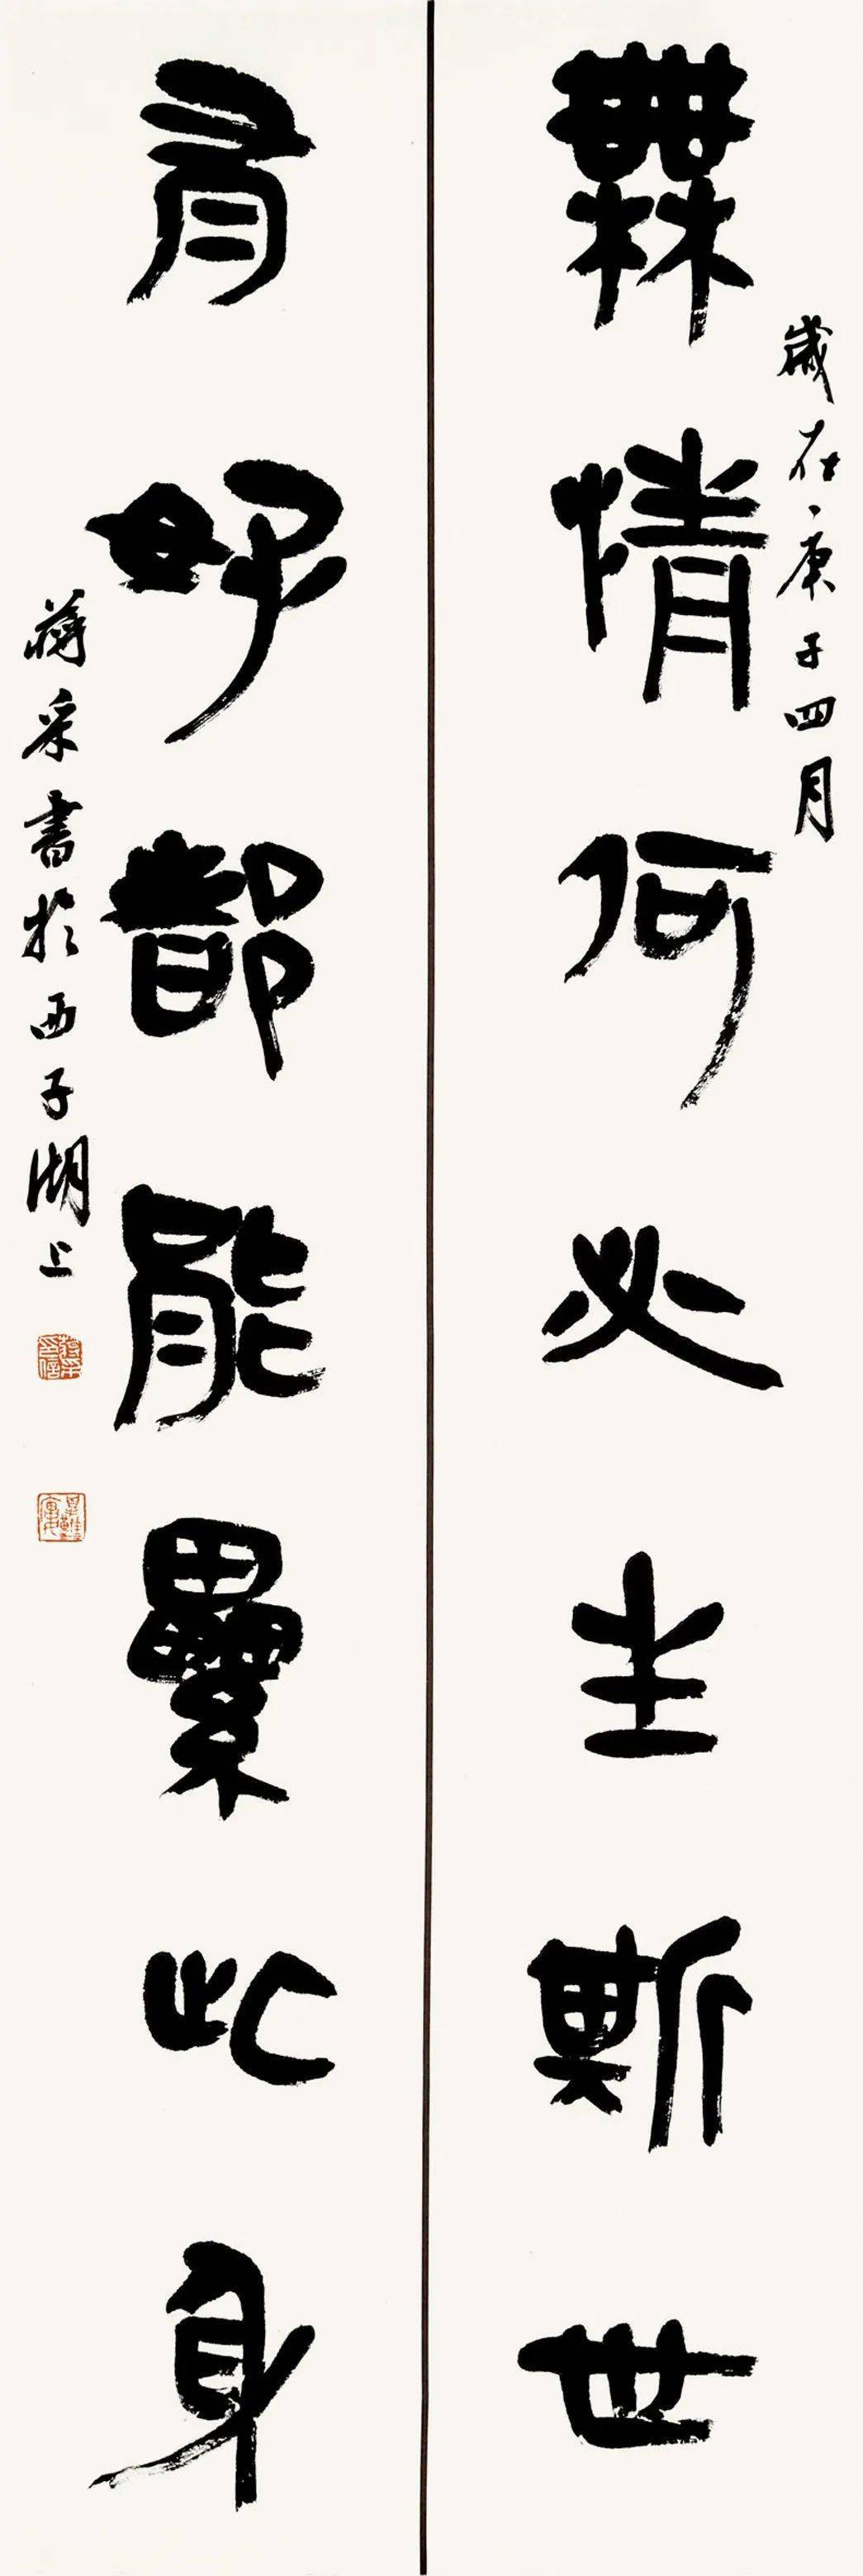 歲在庚子四月
無情何必生斯世
有好都能累此身
蔣采書於西子湖上